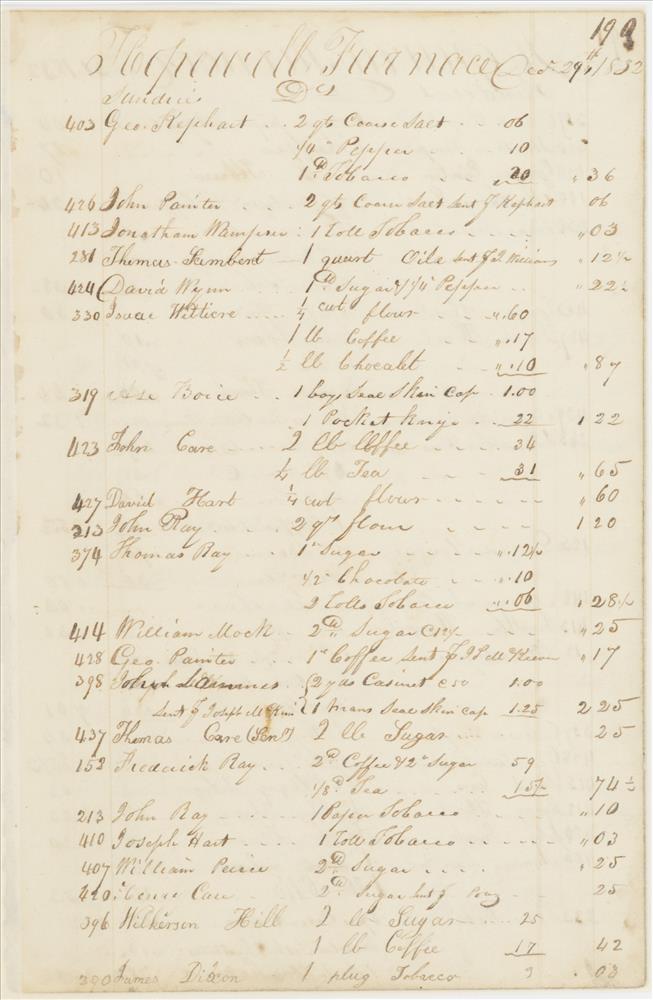 199
Hopewell Furnace Dec 29th 1852
Sundries Drs
403 Geo. Kephart 2 qts Coarse Salt 06
1/4 " Pepper 10
1 lb Tobacco 20 " 36
426 John Painter 2 qts Coarse Salt Sent J Kephart 06
413 Jonathan Wampser 1 Roll Tobacco " 03
281 Thomas Lambert 1 quart Oile Sent Williams " 12 1/2
424 David Wynn 1 lb Sugar & 1/4 " Pepper " 22 1/2
330 Isaac 1/4 cwt flour " .60
1 lb Coffee " .17
1/2 lb Chocalet " .10 " 87
319 Boice 1 boys Seal Skin Cap 1.00
1 Pocket Knife 22 1 22
423 John Care 2 lb Coffee 34
1/4 lb Tea 31 " 65
427 David Hart 1/4 cwt flour " 60
213 John Ray 2 qrs flour 1 20
374 Thomas Ray 1 " Sugar " .12 1/2
1/2 " Chocolate " .10
2 Rolls Tobacco " .06 " 28 1/2
414 William Mock 2 lb Sugar @ 12 1/2 " 25
428 Geo. Painter 1 " Coffee Sent J McKewn " 17
398 { 2 yds Casinet @ 50 1.00
Sent J Joseph { 1 mans Seal Skin Cap 1.25 2 25
437 Thomas Care (Senr) 2 lb Sugar 25
152 Frederick Ray 2 lb Coffee & 2 " Sugar 59
1/8 lb Tea 15 1/2 74 1/2
213 John Ray 1 Paper Tobacco " 10
410 Joseph Hart 1 Roll Tobacco " 03
407 William Peirce 2 lb Sugar " 25
420 Care 2 lb Sugar Sent J 25
396 Wilkerson Hill 2 lb Sugar 25
1 lb Coffee 17 42
390 James Dixon 1 plug Tobacco 3 . 03